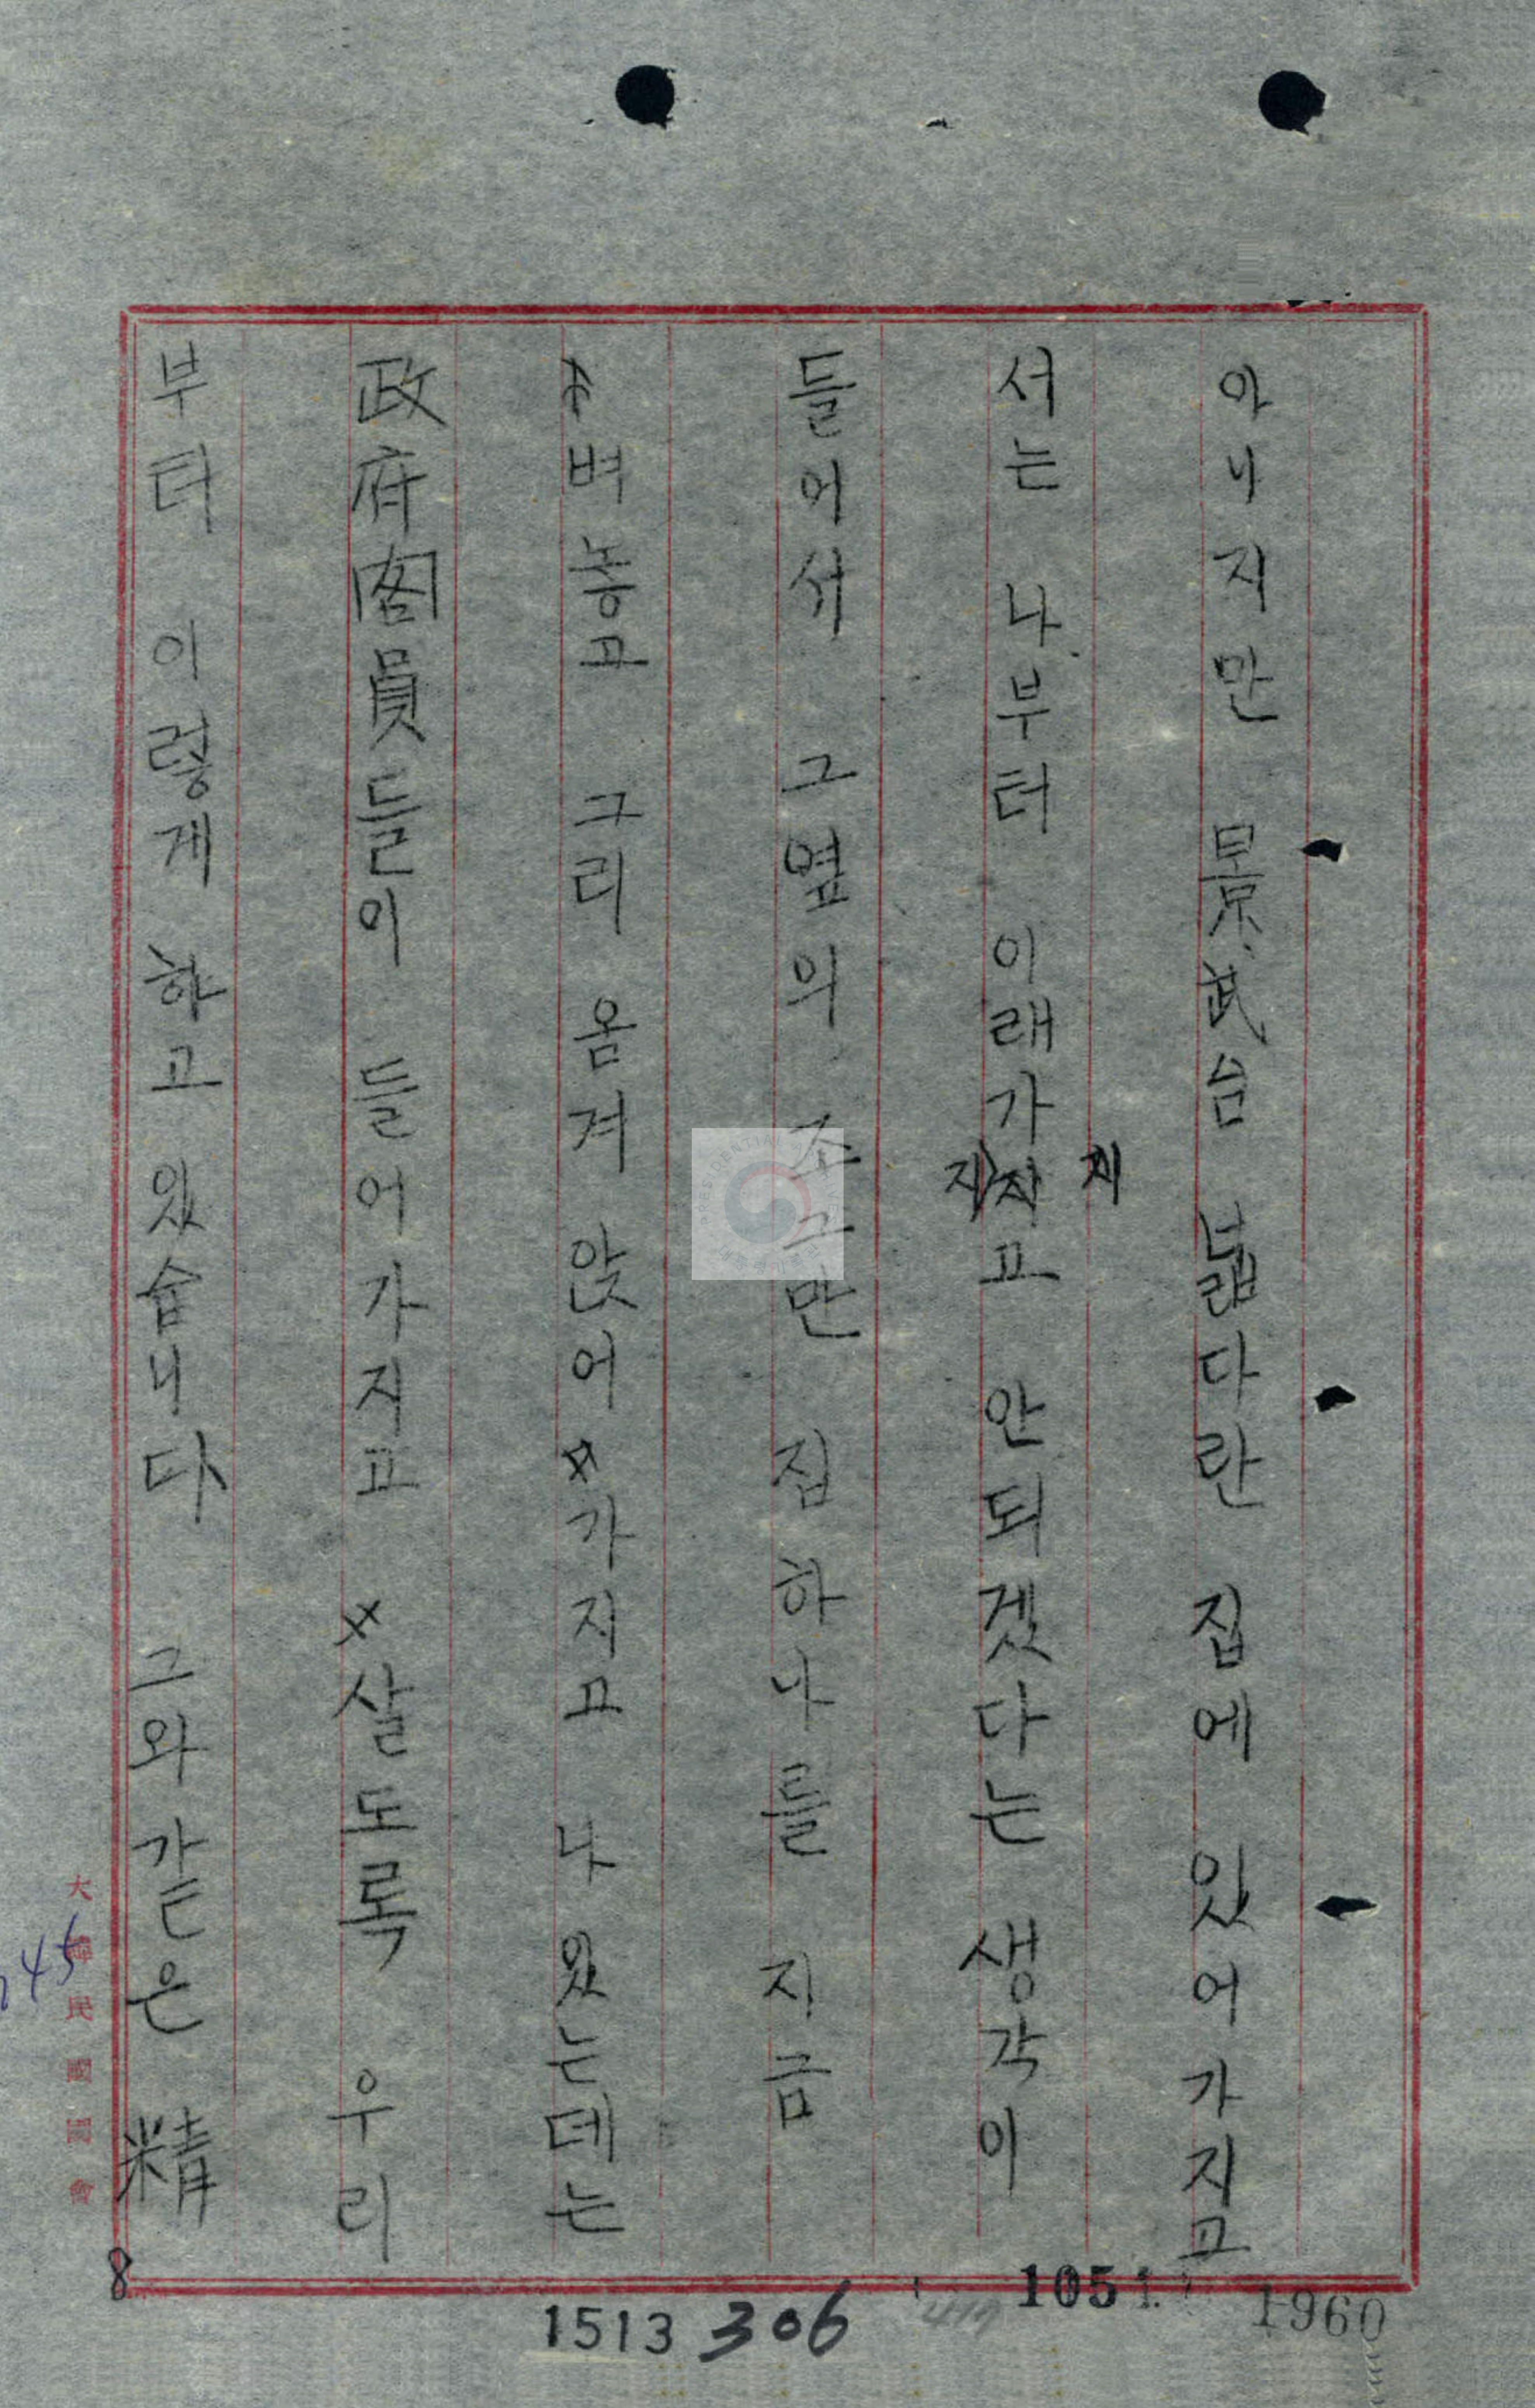 아니지만 景武台 넓다란 집에 있어가지고
서는 나부터 이래가지고 안되겠다는 생각이
들어서 그 옆의 조그만 집 하나를 지금
벼놓고 그리 옴겨 앉어 가지고 나왔는데는
政府閣員들이 들어가지고 살도록 우리
부터 이렇게 하고 있습니다 그와 같은 精
大韓民國國會
45
8
1513
306
1051
1960